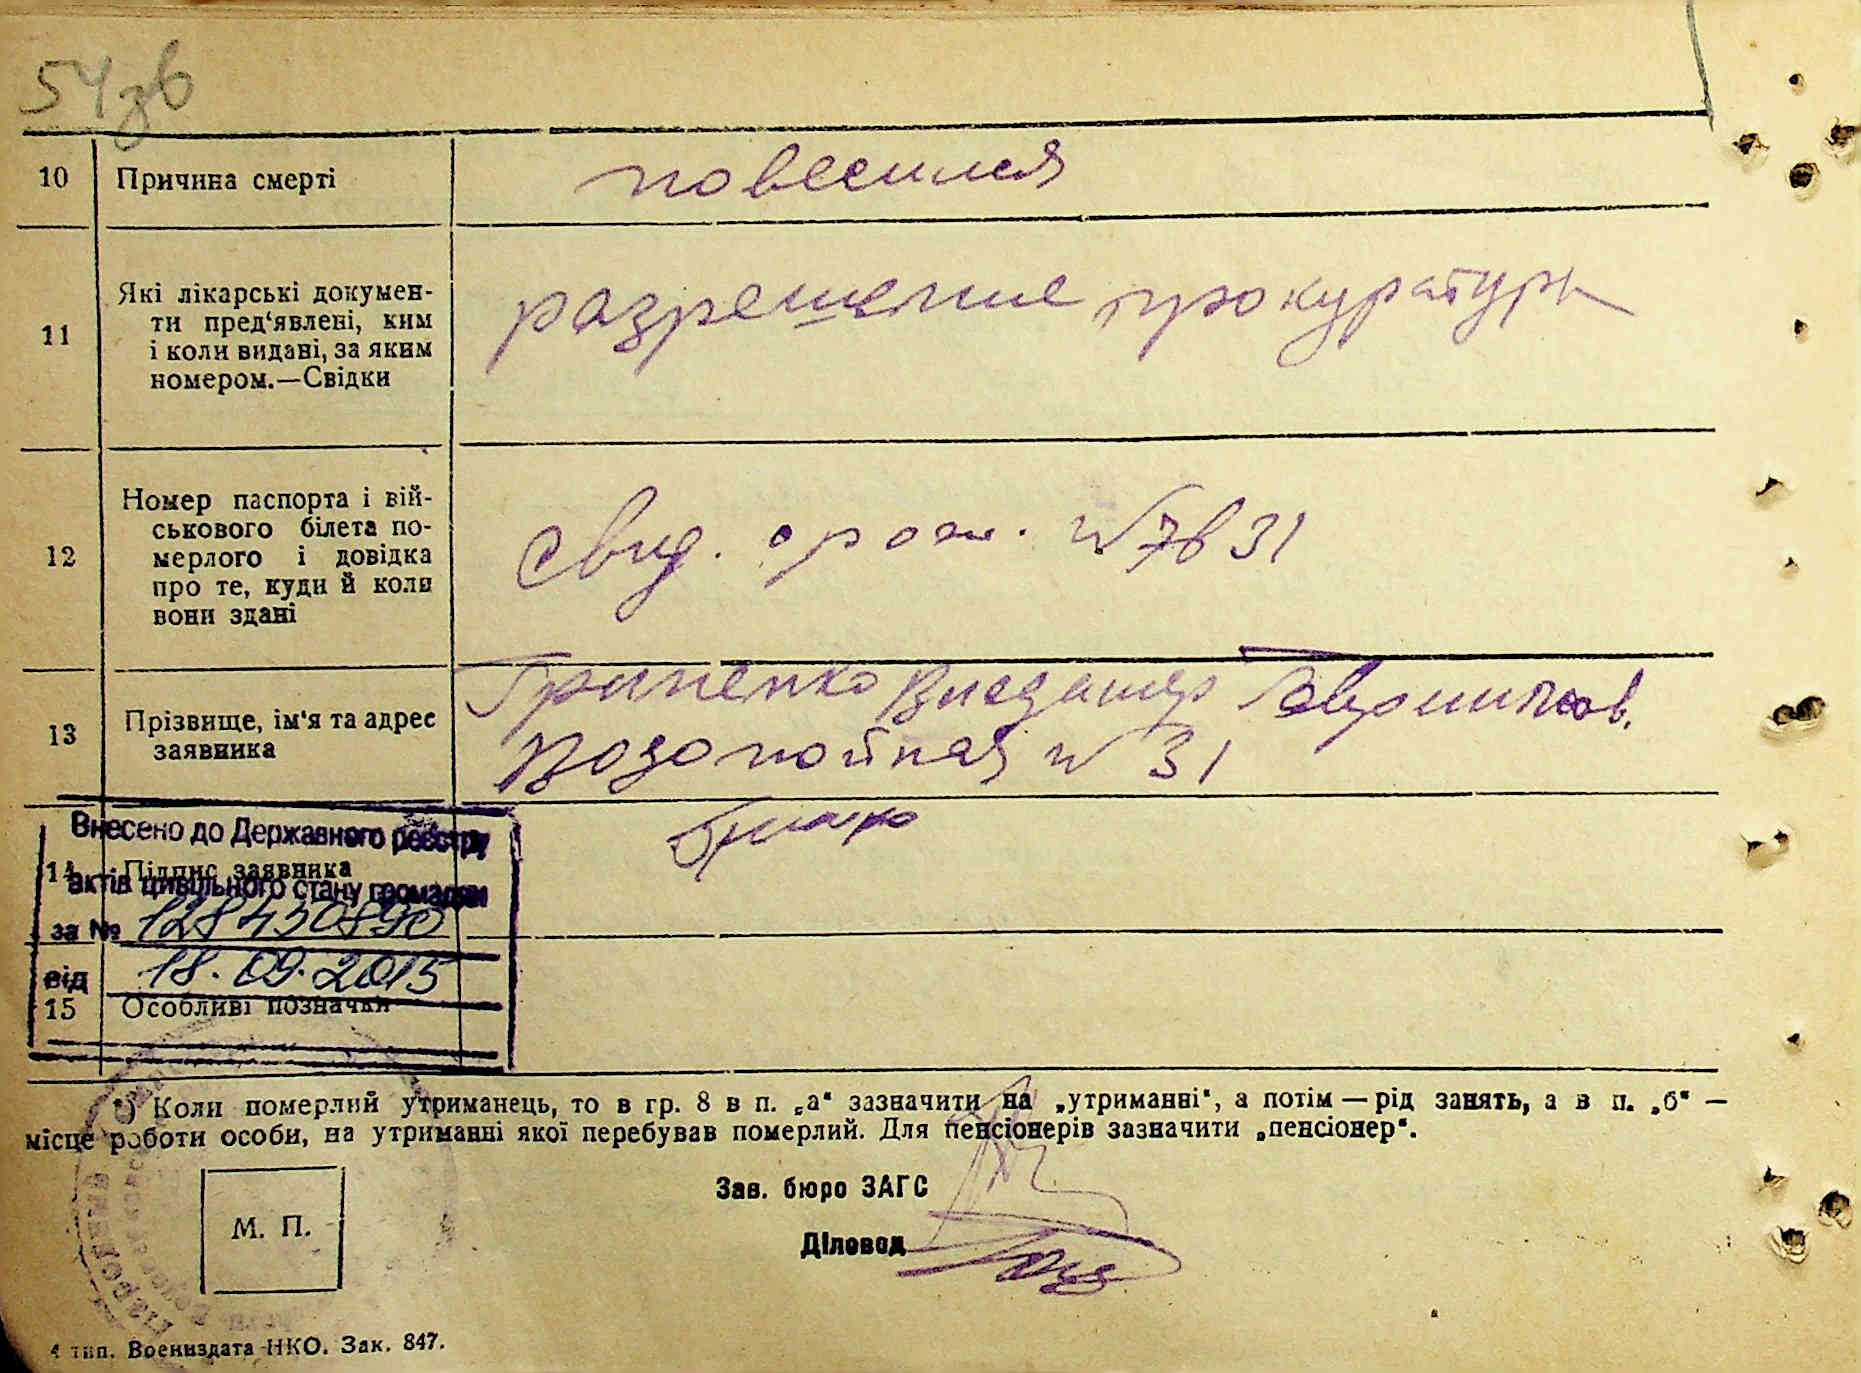 54зв
10 Причина смерті повесился
11 Які лікарські докумен-
ти пред‘явлені, ким
і коли видані, за яким
номером.—Свідки
разрешение прокуратуры
12 Номер паспорта і вій-
ськового білета по-
мерлого і довідка
про те, куди й коли
вони здані
свид. о рож. №7831
13 Прізвище, ім‘я та адрес
заявника
Гриненко Владимир
Водопойная № 31
Внесено до Державного реєстру
14 Підпис заявника
актів цивільного стану громадян
за № 128430890
від 18.09.2015
15 Особливі позначки
*) Коли померлий утриманець, то в гр. 8 в п. „а“ зазначити на „утриманні“, а потім — рід занять, а в п. „б“ —
місце роботи особи, на утриманні якої перебував померлий. Для пенсіонерів зазначити „пенсіонер“.
Зав. бюро ЗАГС
М. П.
Діловод
4 тип. Воениздата НКО. Зак. 847.